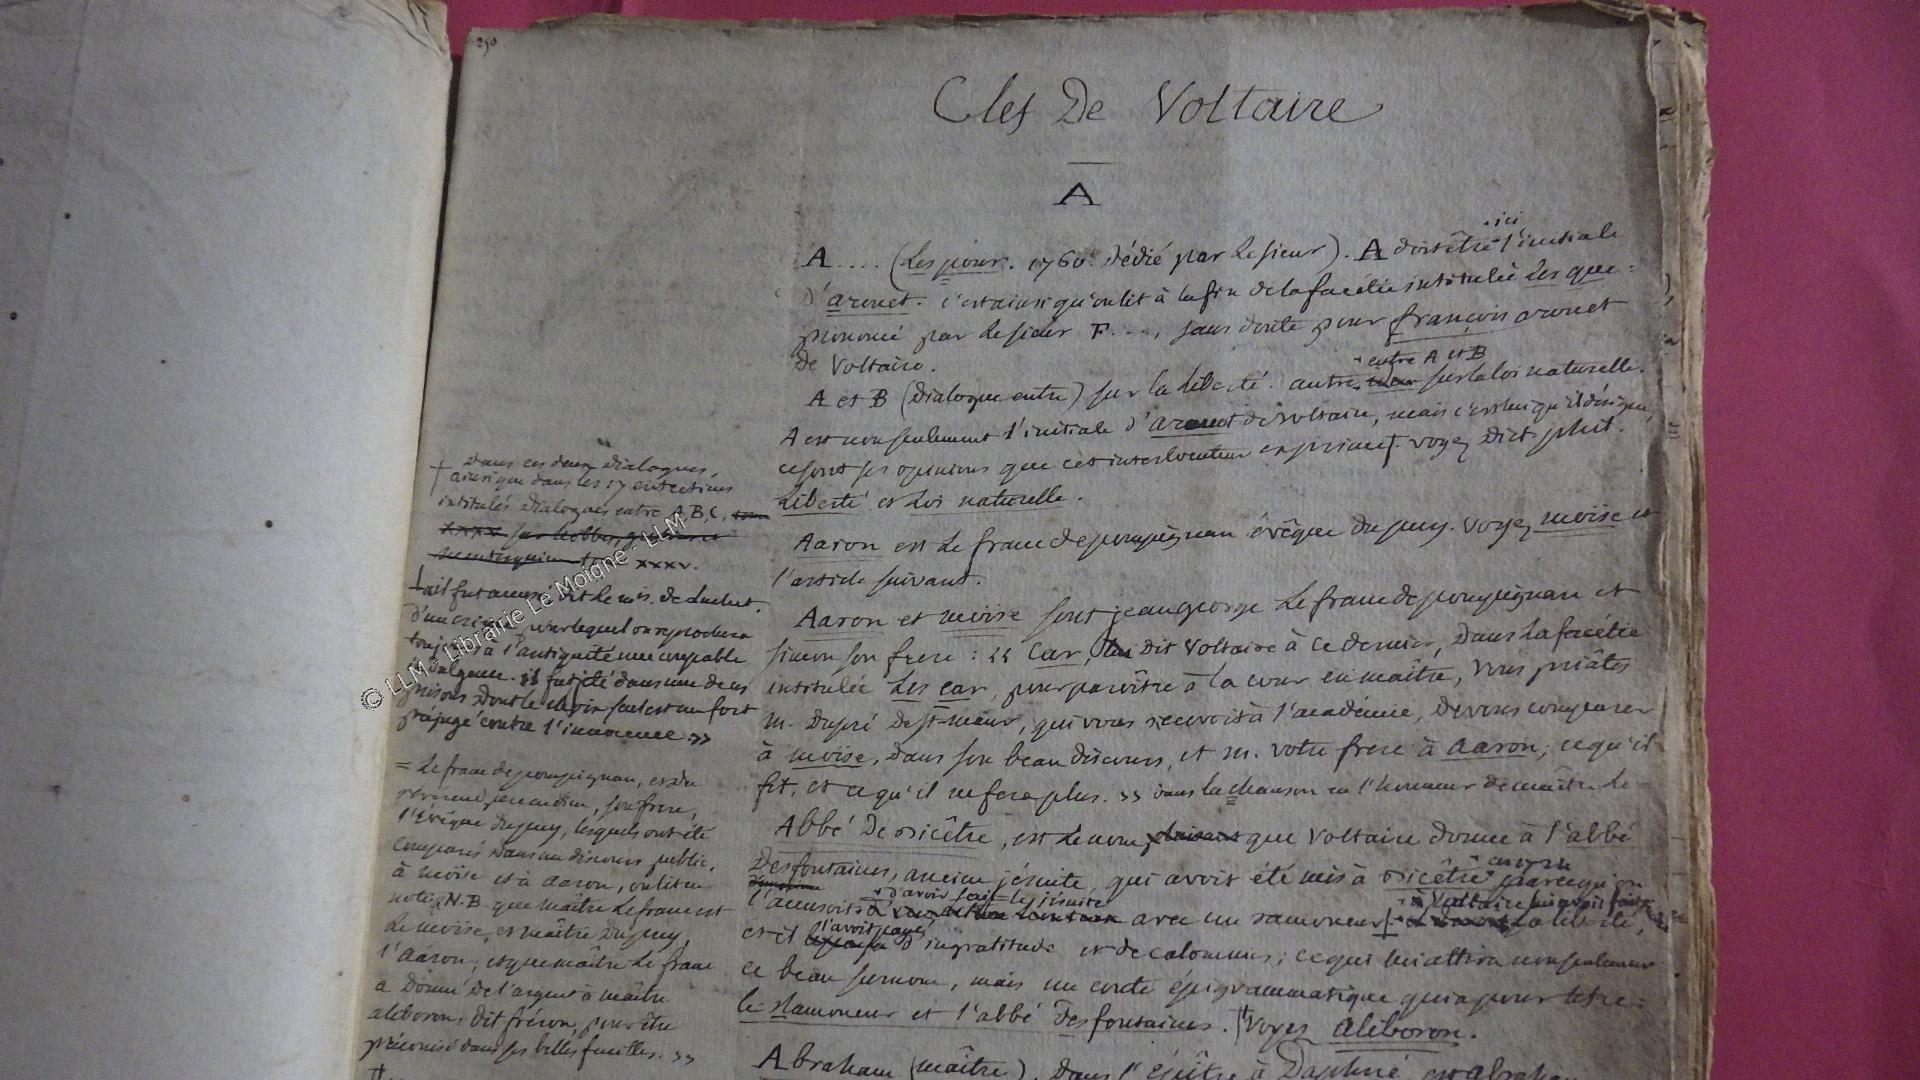 250
Clef De Voltaire
A
A.... (Les pour. 1760. dédié par le sieur). A doit être ici l'initiale
D'arouet. c'est ainsi qu'on lit à la fin de la facétie intitulée Les que:
prononcé par le sieur F...., sans doute pour françois arouet
De Voltaire.
A et B (Dialogue entre) sur la Liberté. autre entre A et B sur la loi naturelle.
A est non seulement l'initiale d'arouet de Voltaire, mais c'est lui qu'il désigne,
ce sont ses opinions que cet interlocuteur exprime. voyez Dict. phil.
Liberté et Loi naturelle.
Aaron est Le franc de pompignan évêque du puy. Voyez moïse et
l'article suivant.
Aaron et moïse sont jean george Le franc de pompignan et
simeon son frere : " Car, dit Voltaire à ce dernier, Dans la facétie
intitulée Les car, pour paroître à la cour en maître, Vous priâtes
m. Dupré De St maur, qui vous recevoit à l'académie, de vous comparer
à moïse, dans son beau discours, et m. votre frere à Aaron; ce qu'il
fit, et ce qu'il ne fera plus. » dans la chanson en l'honneur de maître Le
Abbé De Bicêtre, est le nom plaisant que Voltaire donne à l'abbé
Desfontaines, ancien jésuite, qui avoit été mis à Bicêtre
l'accusoit d'avoir avec un ramoneur à Voltaire la liberté,
et il l'avoit payé d'ingratitude et de calomnies; ce qui lui attira non seulement
ce beau surnom, mais un conte épigrammatique qui a pour titre:
le Ramoneur et l'abbé Desfontaines. Voyez Aliboron.
Abraham (maître), dans l'épître à Daphné, est abraham
† Dans ces deux Dialogues,
ainsi que dans les 17 entretiens
intitulés Dialogues entre A, B, C,
xxxv sur hobbes,
xxxv.
dit Le mis. de Luchet.
D'un crime pour lequel on reprochera
toujours à l'antiquité une coupable
indulgence. il fut jeté dans une de ces
prisons dont le choix seul est un fort
préjugé contre l'innocence »
= Le franc de pompignan, est
son frere,
l'évêque du puy, lesquels ont été
comparés dans un discours public,
à moïse et à Aaron, on lit en
note: N.B. que maître Le franc est
Le moïse, et maître Du puy,
l'Aaron; et que maître Le franc
a donné de l'argent à maître
aliboron, dit fréron, pour être
préconisé dans ses belles feuilles. »
© LLM - Librairie Le Moigne - LLM